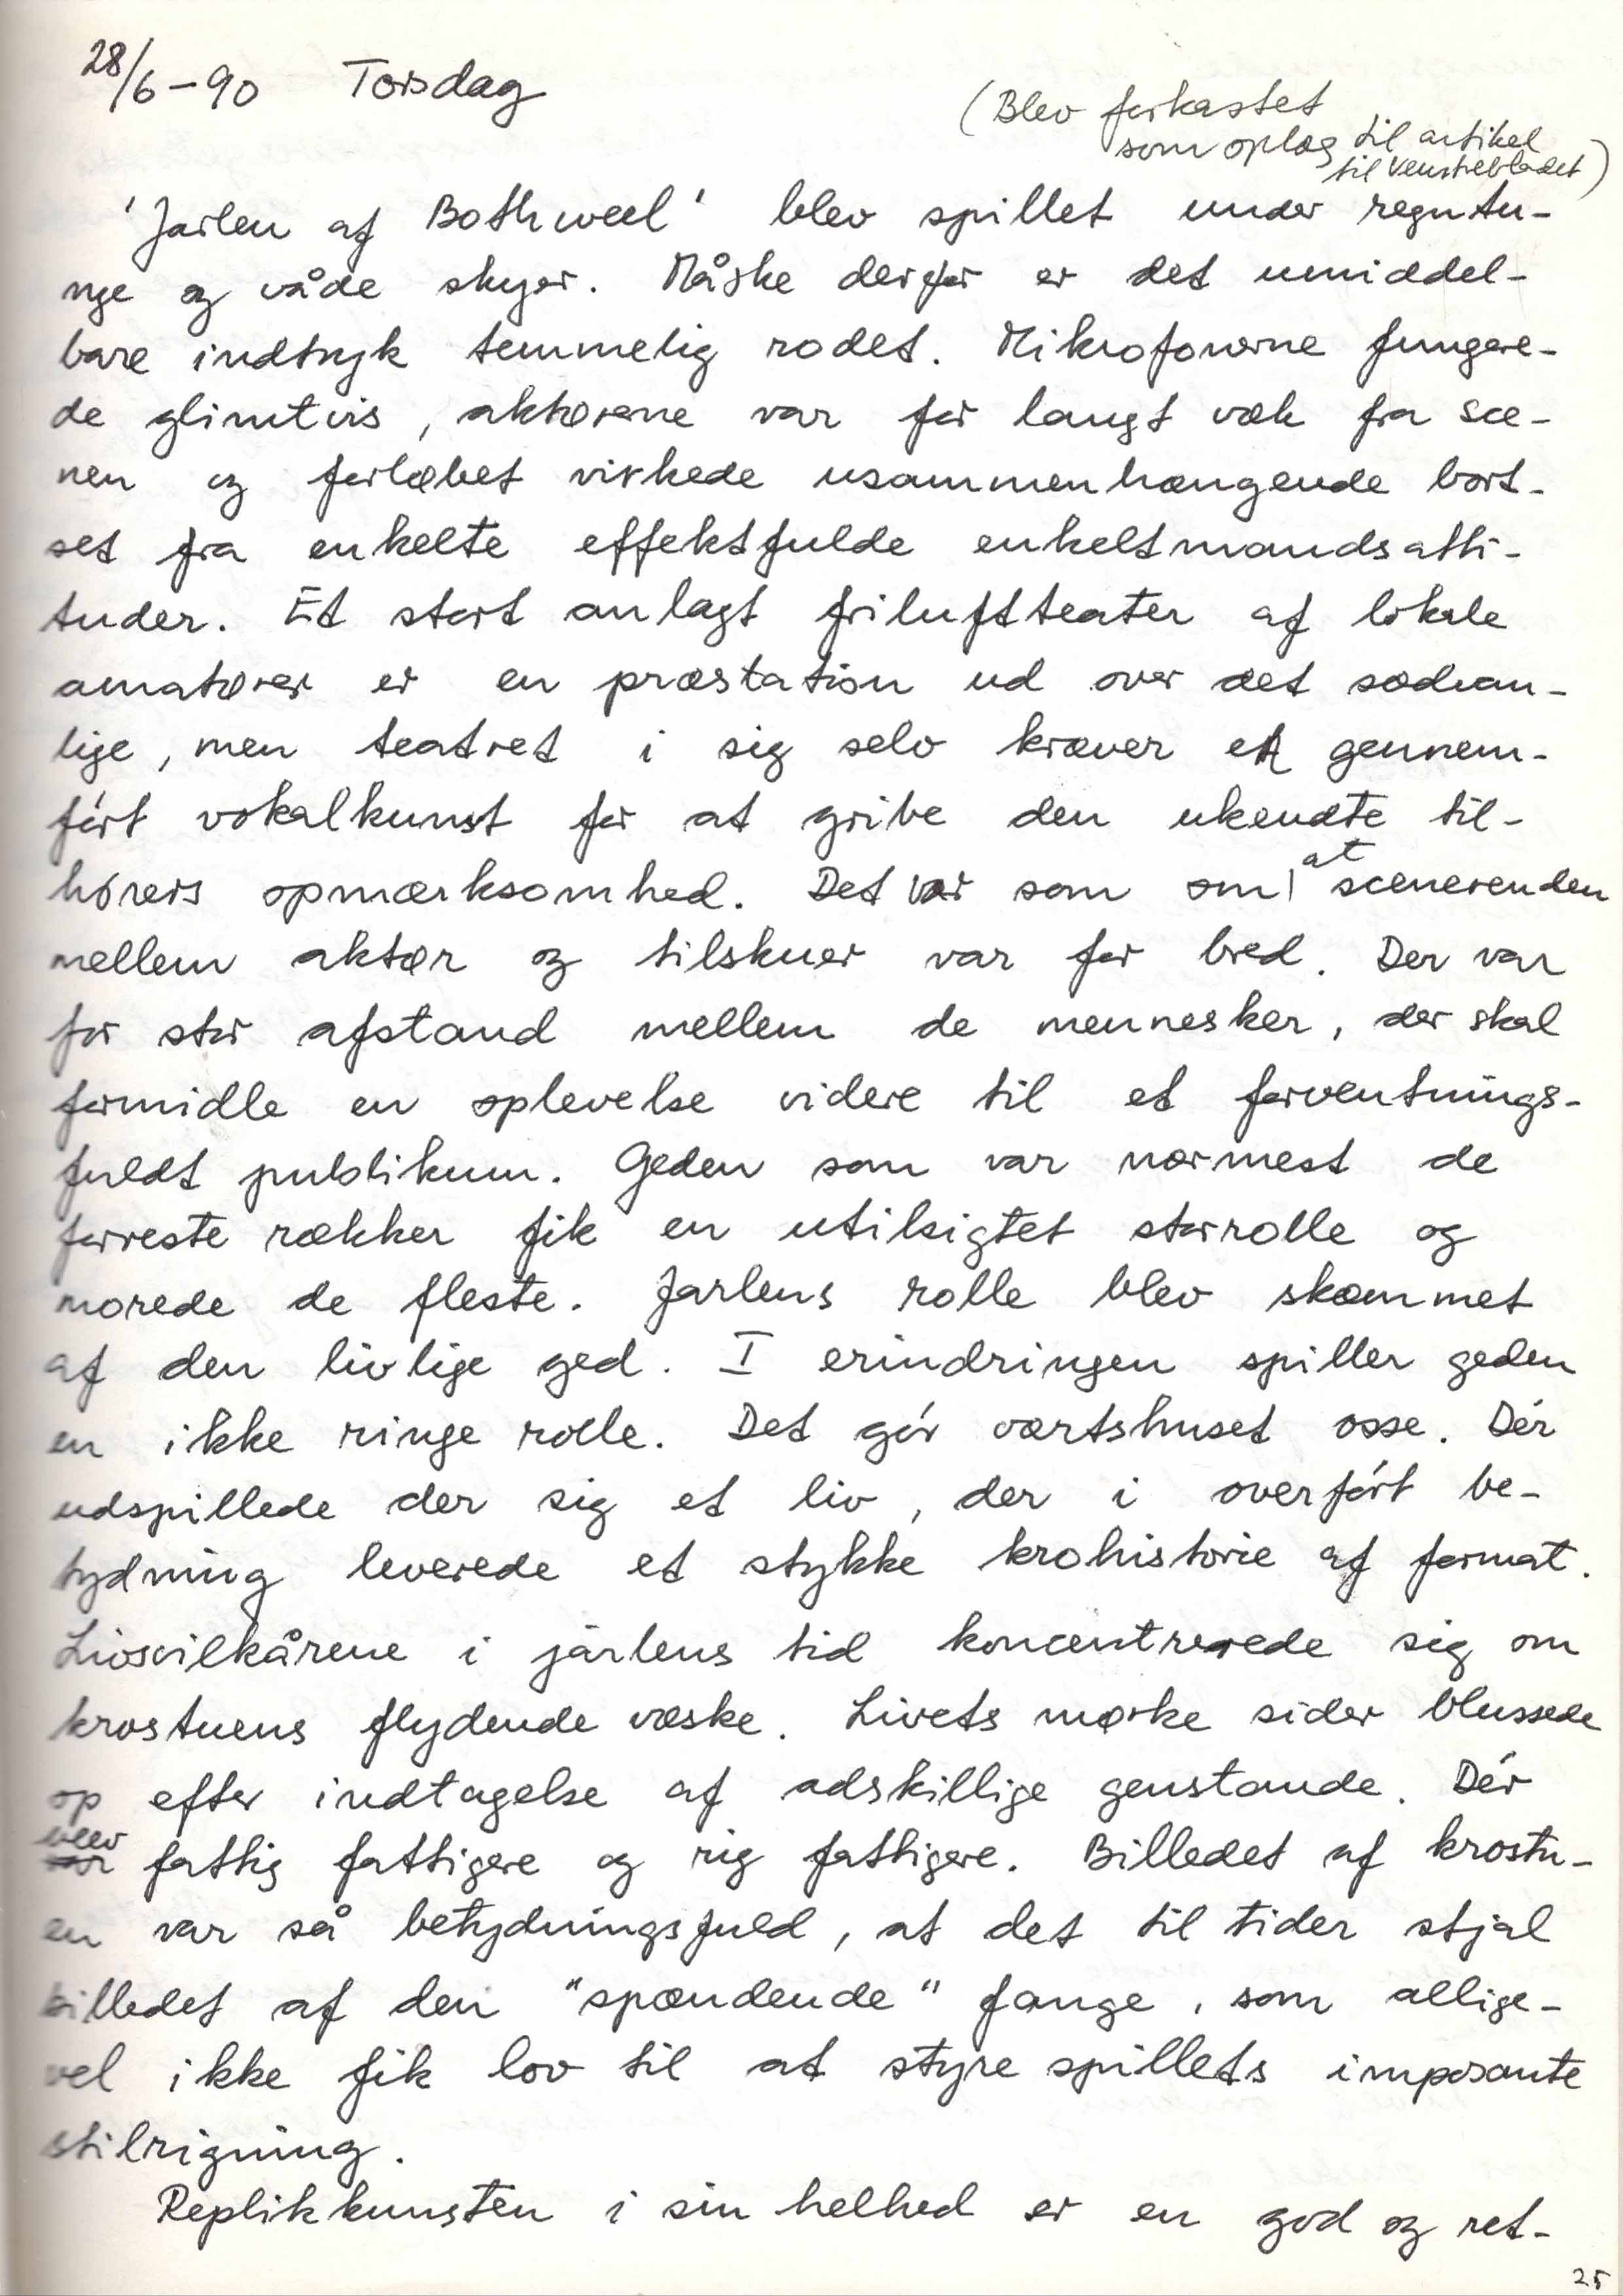 28/6-90 Torsdag
(Blev forkastet
som oplæg til artikel
til Venstrebladet)
'Jarlen af Bothwell' blev spillet under regntu-
nge og våde skyer. Måske derfor er det umiddel-
bare indtryk temmelig rodet. Mikrofonerne fungere-
de glimtvis, aktørerne var for langt væk fra sce-
nen og forløbet virkede usammenhængende bort-
set fra enkelte effektfulde enkeltmandsatti-
tuder. Et stort anlagt friluftteater af lokale
amatører er en præstation ud over det sædvan-
lige, men teatret i sig selv kræver en gennem-
ført vokalkunst for at gribe den ukendte til-
hørers opmærksomhed. Det var som om at scenerenden
mellem aktør og tilskuer var for bred. Der var
for stor afstand mellem de mennesker, der skal
formidle en oplevelse videre til et forventnings-
fuldt publikum. Geden som var nærmest de
forreste rækker fik en utilsigtet storrolle og
morede de fleste. Jarlens rolle blev skæmmet
af den livlige ged. I erindringen spiller geden
en ikke ringe rolle. Det gør værtshuset osse. Dér
udspillede der sig et liv, der i overført be-
tydning leverede et stykke krohistorie af format.
Livsvilkårene i jarlens tid koncentrerede sig om
krostuens flydende væske. Livets mørke sider blussede
op efter indtagelse af adskillige genstande. Dér
blev fattig fattigere og rig fattigere. Billedet af krostu-
en var så betydningsfuld, at det til tider stjal
billedet af den "spændende" fange, som allige-
vel ikke fik lov til at styre spillets imposante
stilrigning.
Replikkunsten i sin helhed er en god og ret-
25